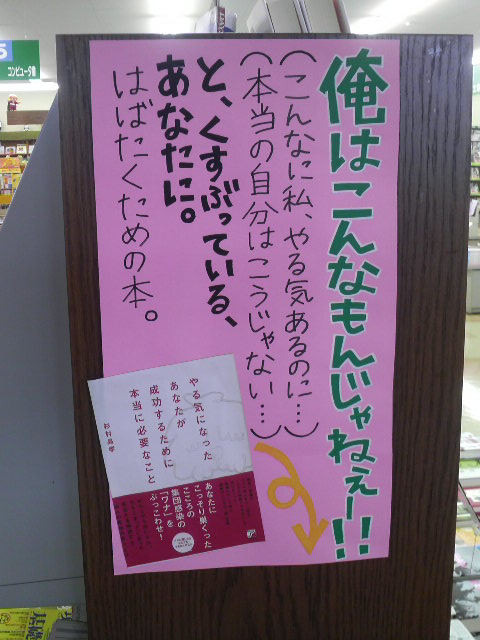 俺はこんなもんじゃねぇー!!
(こんなに私、やる気あるのに…)
(本当の自分はこうじゃない…)
と、くすぶっている、
あなたに。
はばたくための本。
やる気になった
あなたが
成功するために
本当に必要なこと
あなたに
こっそり巣くった
こころの
集団感染の
「ワナ」を
ぶっこわせ!
5
コンピュータ書